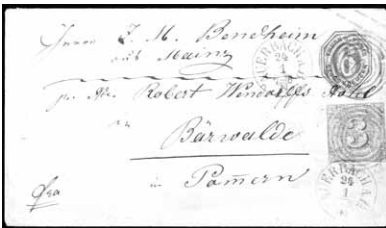 Herrn J. M. Bendheim
aus Mainz
pr. Adr. Robert Wendorffs Hôtel
in
Bärwalde
in Pom̄ern
fra
AUERBACH
24
1
3
AUERBACH
24
1